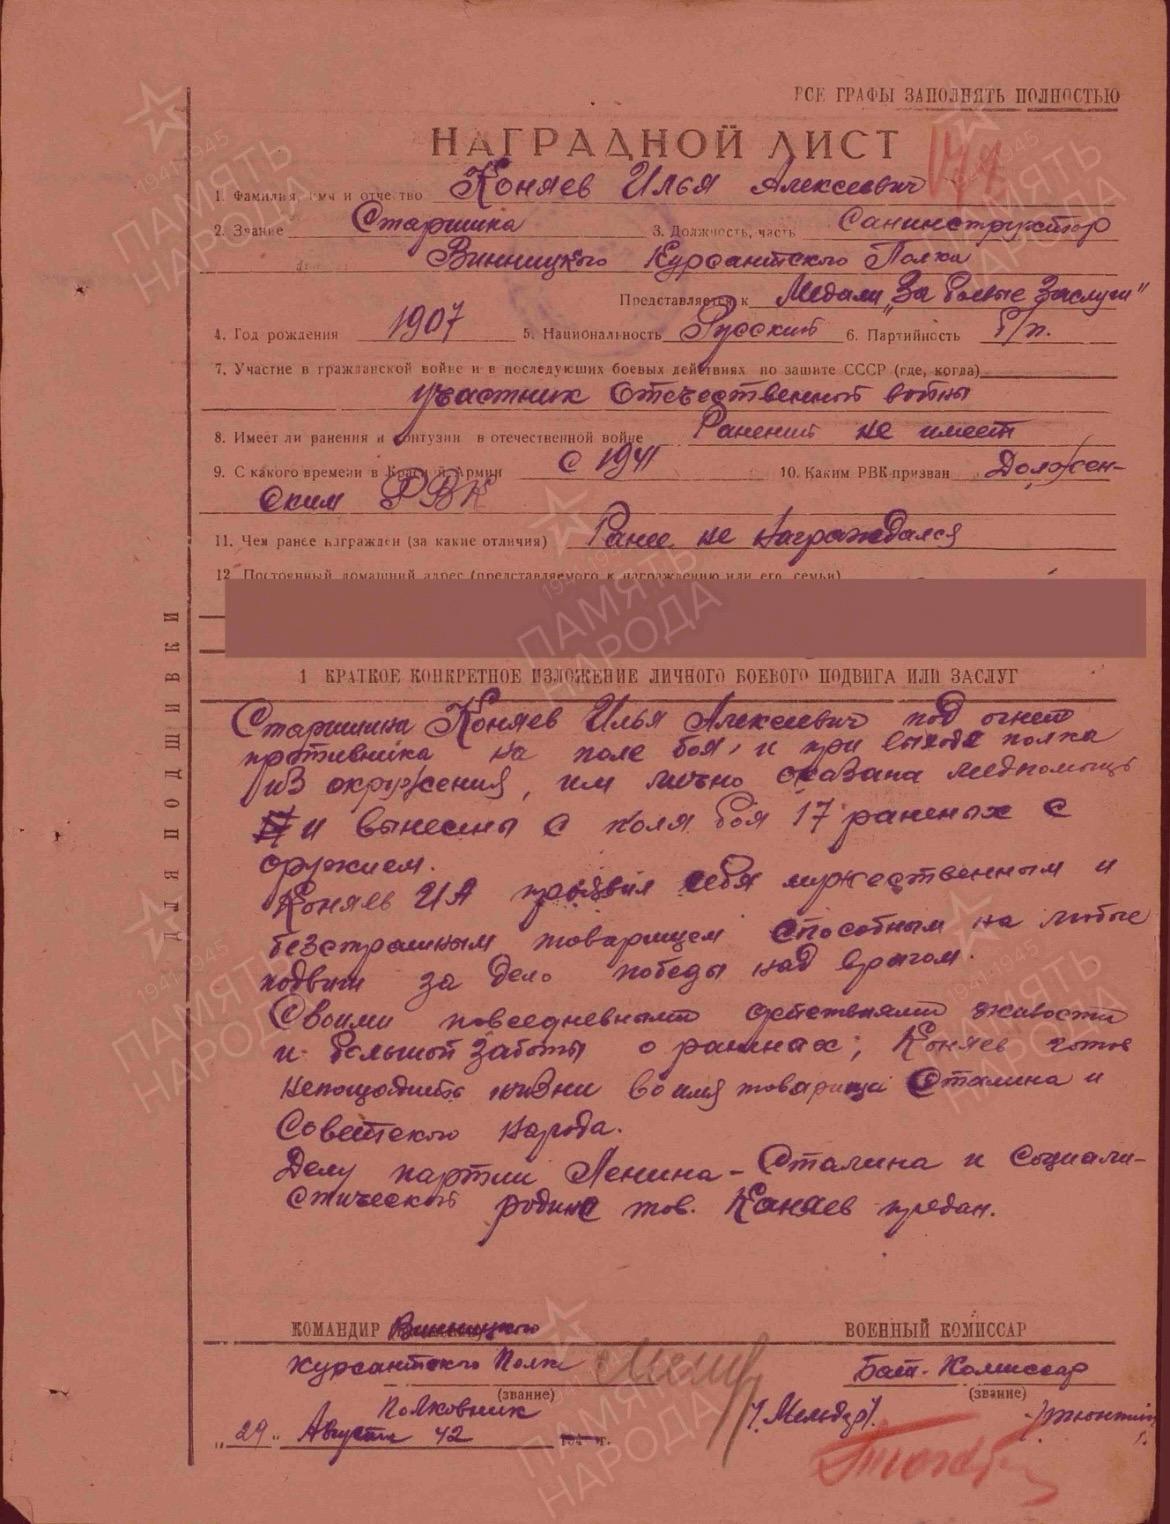 ВСЕ ГРАФЫ ЗАПОЛНЯТЬ ПОЛНОСТЬЮ
НАГРАДНОЙ ЛИСТ
1. Фамилия, имя и отчество Коняев Илья Алексеевич
2. Звание Старшина 3. Должность, часть Санинструктор
Винницкого Курсантского Полка
Представляется к Медали „За боевые Заслуги"
4. Год рождения 1907 5. Национальность Русский 6. Партийность б/п.
7. Участие в гражданской войне и в последующих боевых действиях по защите СССР (где, когда)
участник Отечественной войны
8. Имеет ли ранения и контузии в отечественной войне Ранений не имеет
9. С какого времени в Красной Армии с 1941 10. Каким РВК призван Должен-
ским РВК
11. Чем ранее награжден (за какие отличия) Ранее не награждался
12. Постоянный домашний адрес (представляемого к награждению или его семьи)
1 КРАТКОЕ КОНКРЕТНОЕ ИЗЛОЖЕНИЕ ЛИЧНОГО БОЕВОГО ПОДВИГА ИЛИ ЗАСЛУГ
Старшина Коняев Илья Алексеевич под огнем
противника на поле боя, и при выходе полка
из окружения, им лично оказана медпомощь
и вынесены с поля боя 17 раненых с
оружием.
Коняев ИА проявил себя мужественным и
безстрашным товарищем способным на любые
подвиги за дело победы над врагом.
Своими повседневными действиями живости
и большой заботы о раненах; Коняев готов
непощадить жизни во имя товарища Сталина и
Советского народа.
Делу партии Ленина - Сталина и социали-
стической родине тов. Каняев предан.
КОМАНДИР Винницкого ВОЕННЫЙ КОМИССАР
курсантского Полка Бат. Комиссар
(звание) (звание)
Полковник /. Мельдер/.
„29" Августа 42 г.
ДЛЯ ПОДШИВКИ
1941-1945
ПАМЯТЬ
НАРОДА